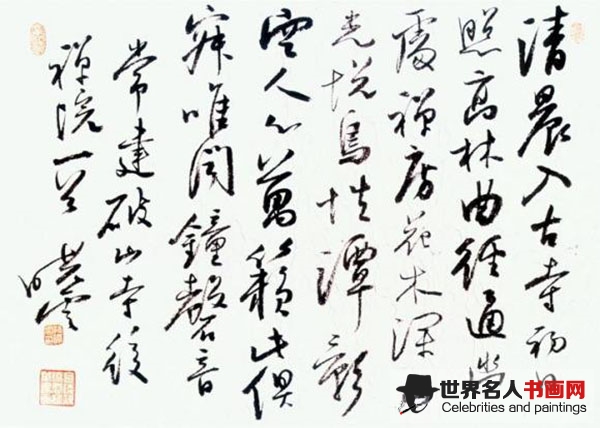 清晨入古寺初日
照高林曲徑通幽
處禪房花木深山
光悅鳥性潭影
空人心萬籟此俱
寂唯聞鐘磬音
常建破山寺後
禪院一首 曉雲
世界名人书画网
Celebrities and paintings